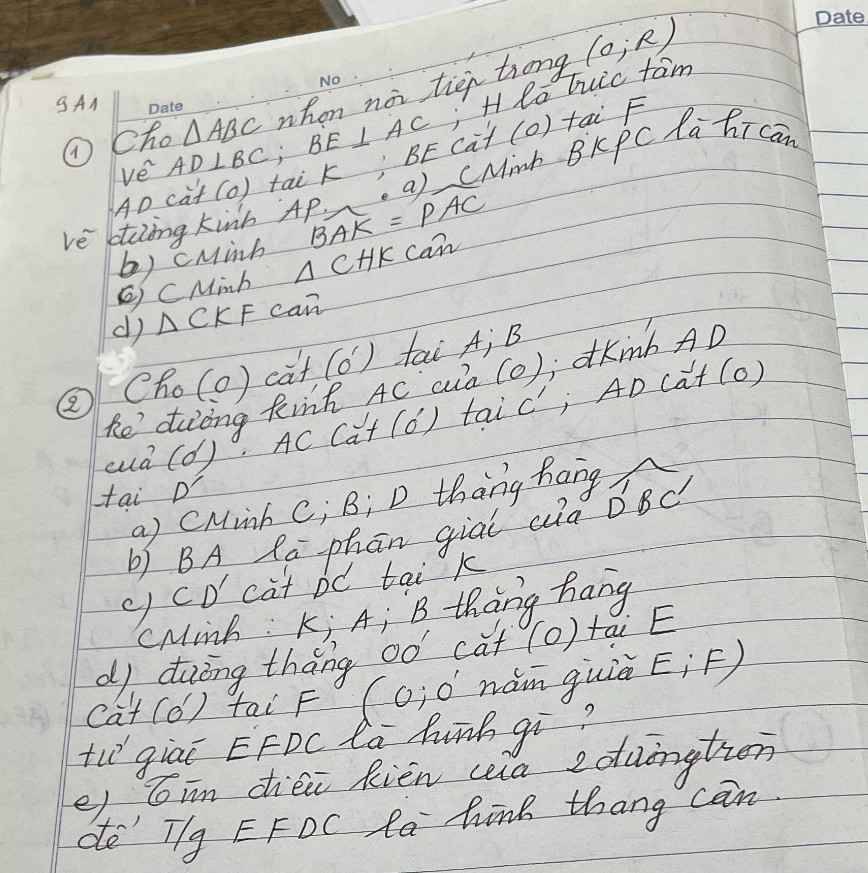 Date
No
9A1 Date
① Cho ΔABC nhọn nội tiếp trong (O;R)
vẽ AD⊥BC; BE⊥AC; H là trực tâm
AD cắt (O) tại K; BE cắt (O) tại F
vẽ đường kính AP. a) CMinh BKPC là hT cân
b) CMinh BAK = PAC
c) CMinh Δ CHK cân
d) Δ CKF cân
② Cho (O) cắt (O') tại A; B
kẻ đường kính AC của (O); đkính AD
của (O'). AC cắt (O') tại C'; AD cắt (O)
tại D'
a) CMinh C; B; D thẳng hàng
b) BA là phân giác của D'BC'
c) CD' cắt DC' tại K
CMinh: K; A; B thẳng hàng
d) đường thẳng OO' cắt (O) tại E
cắt (O') tại F (O;O' nằm giữa E;F)
tứ giác EFDC là hình gì?
e) Tìm điều kiện của 2 đường tròn
để T/g EFDC là hình thang cân.